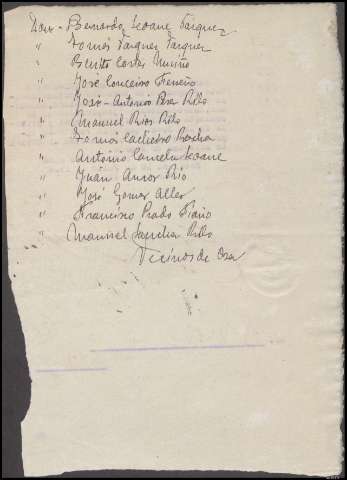 Don - Bernardo Seoane Vázquez
" Tomás Vazquez Vazquez
" Benito Cortes Muiño
" José Conceiro Ferreño
" José - Antonio Pérez Rillo
" Manuel Rios Rillo
" Tomás Cacheiro
" Antonio Cancela Seoane
" Juán Amor Rio
" José Gomez Aller
" Francisco Prado Tiano
" Manuel Sanchez Rillo
Vecinos de Oza